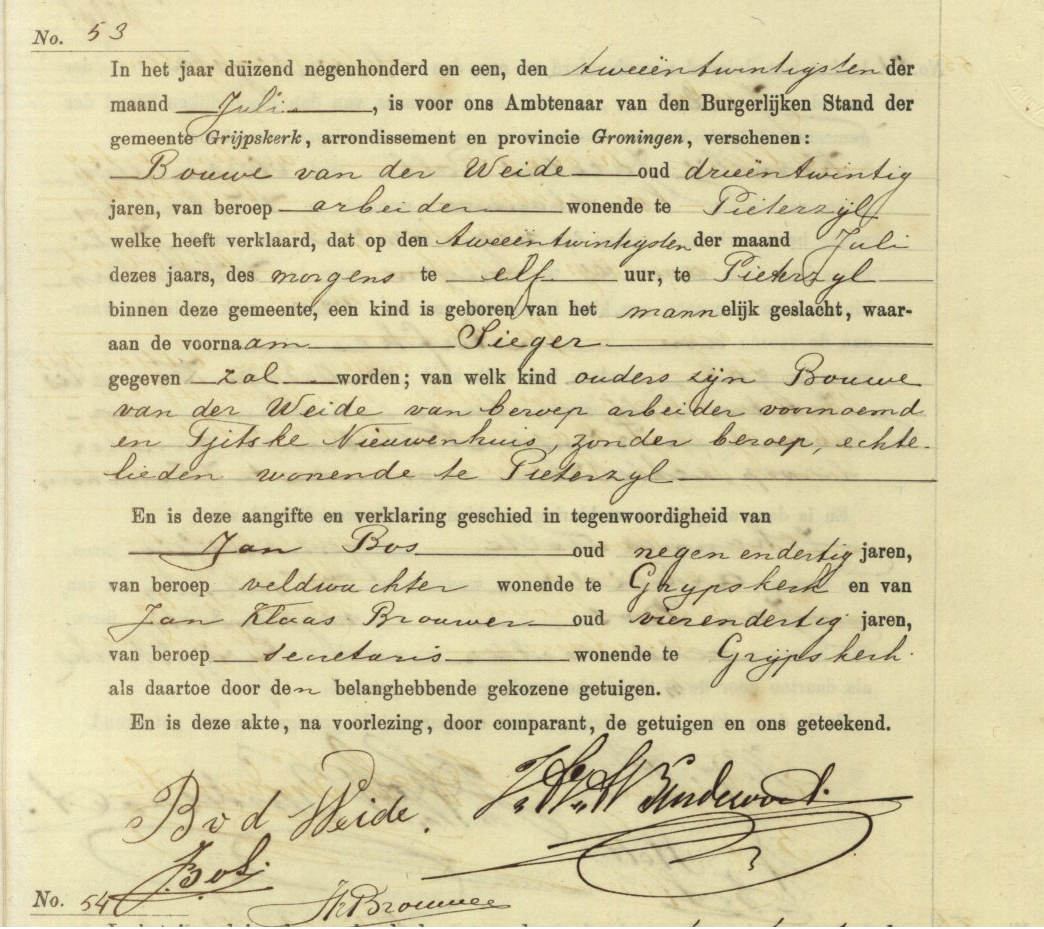 No. 53
In het jaar duizend negenhonderd en een, den tweeëntwintigsten der
maand Juli, is voor ons Ambtenaar van den Burgerlijken Stand der
gemeente Grijpskerk, arrondissement en provincie Groningen, verschenen:
Bouwe van der Weide oud drieëntwintig
jaren, van beroep arbeider wonende te Pieterzijl
welke heeft verklaard, dat op den tweeëntwintigsten der maand Juli
dezes jaars, des morgens te elf uur, te Pieterzyl
binnen deze gemeente, een kind is geboren van het mannelijk geslacht, waar-
aan de voornaam Sieger
gegeven zal worden; van welk kind ouders zijn Bouwe
van der Weide van beroep arbeider voornoemd
en Tjitske Nieuwenhuis, zonder beroep, echte-
lieden wonende te Pieterzyl
En is deze aangifte en verklaring geschied in tegenwoordigheid van
Jan Bos oud negenendertig jaren,
van beroep veldwachter wonende te Grypskerk en van
Jan Klaas Brouwer oud vierendertig jaren,
van beroep secretaris wonende te Grijpskerk
als daartoe door den belanghebbende gekozene getuigen.
En is deze akte, na voorlezing, door comparant, de getuigen en ons geteekend.
B v d Weide.
J. Bos
No. 54
JKBrouwer